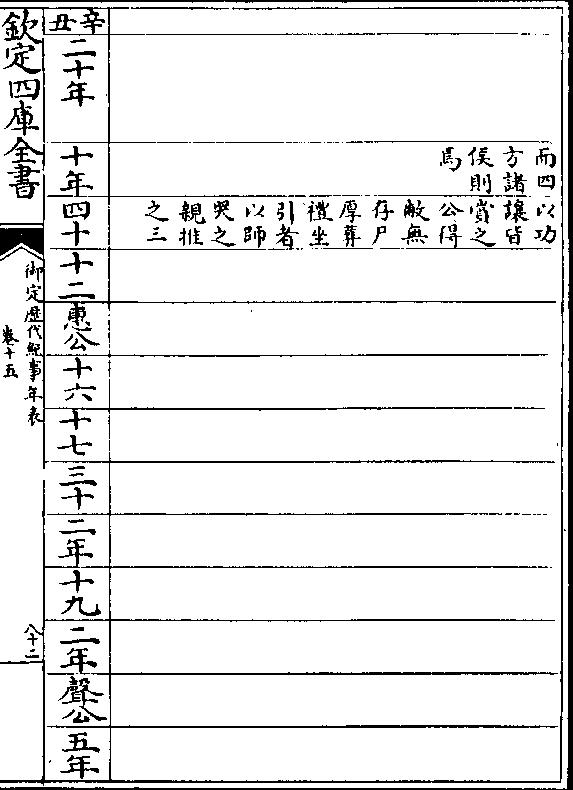 而四
方諸
侯則
馬
以功
讓皆
賞之
公得
敝無
存尸
厚葬
禮坐
引者
以師
哭之
親推
之三
辛丑
二十年
十年
四十
十二
惠公
十六
十七
三十
二年
十九
二年
聲公
五年
欽定四庫全書
御定歴代紀事年表
卷十五
八十二